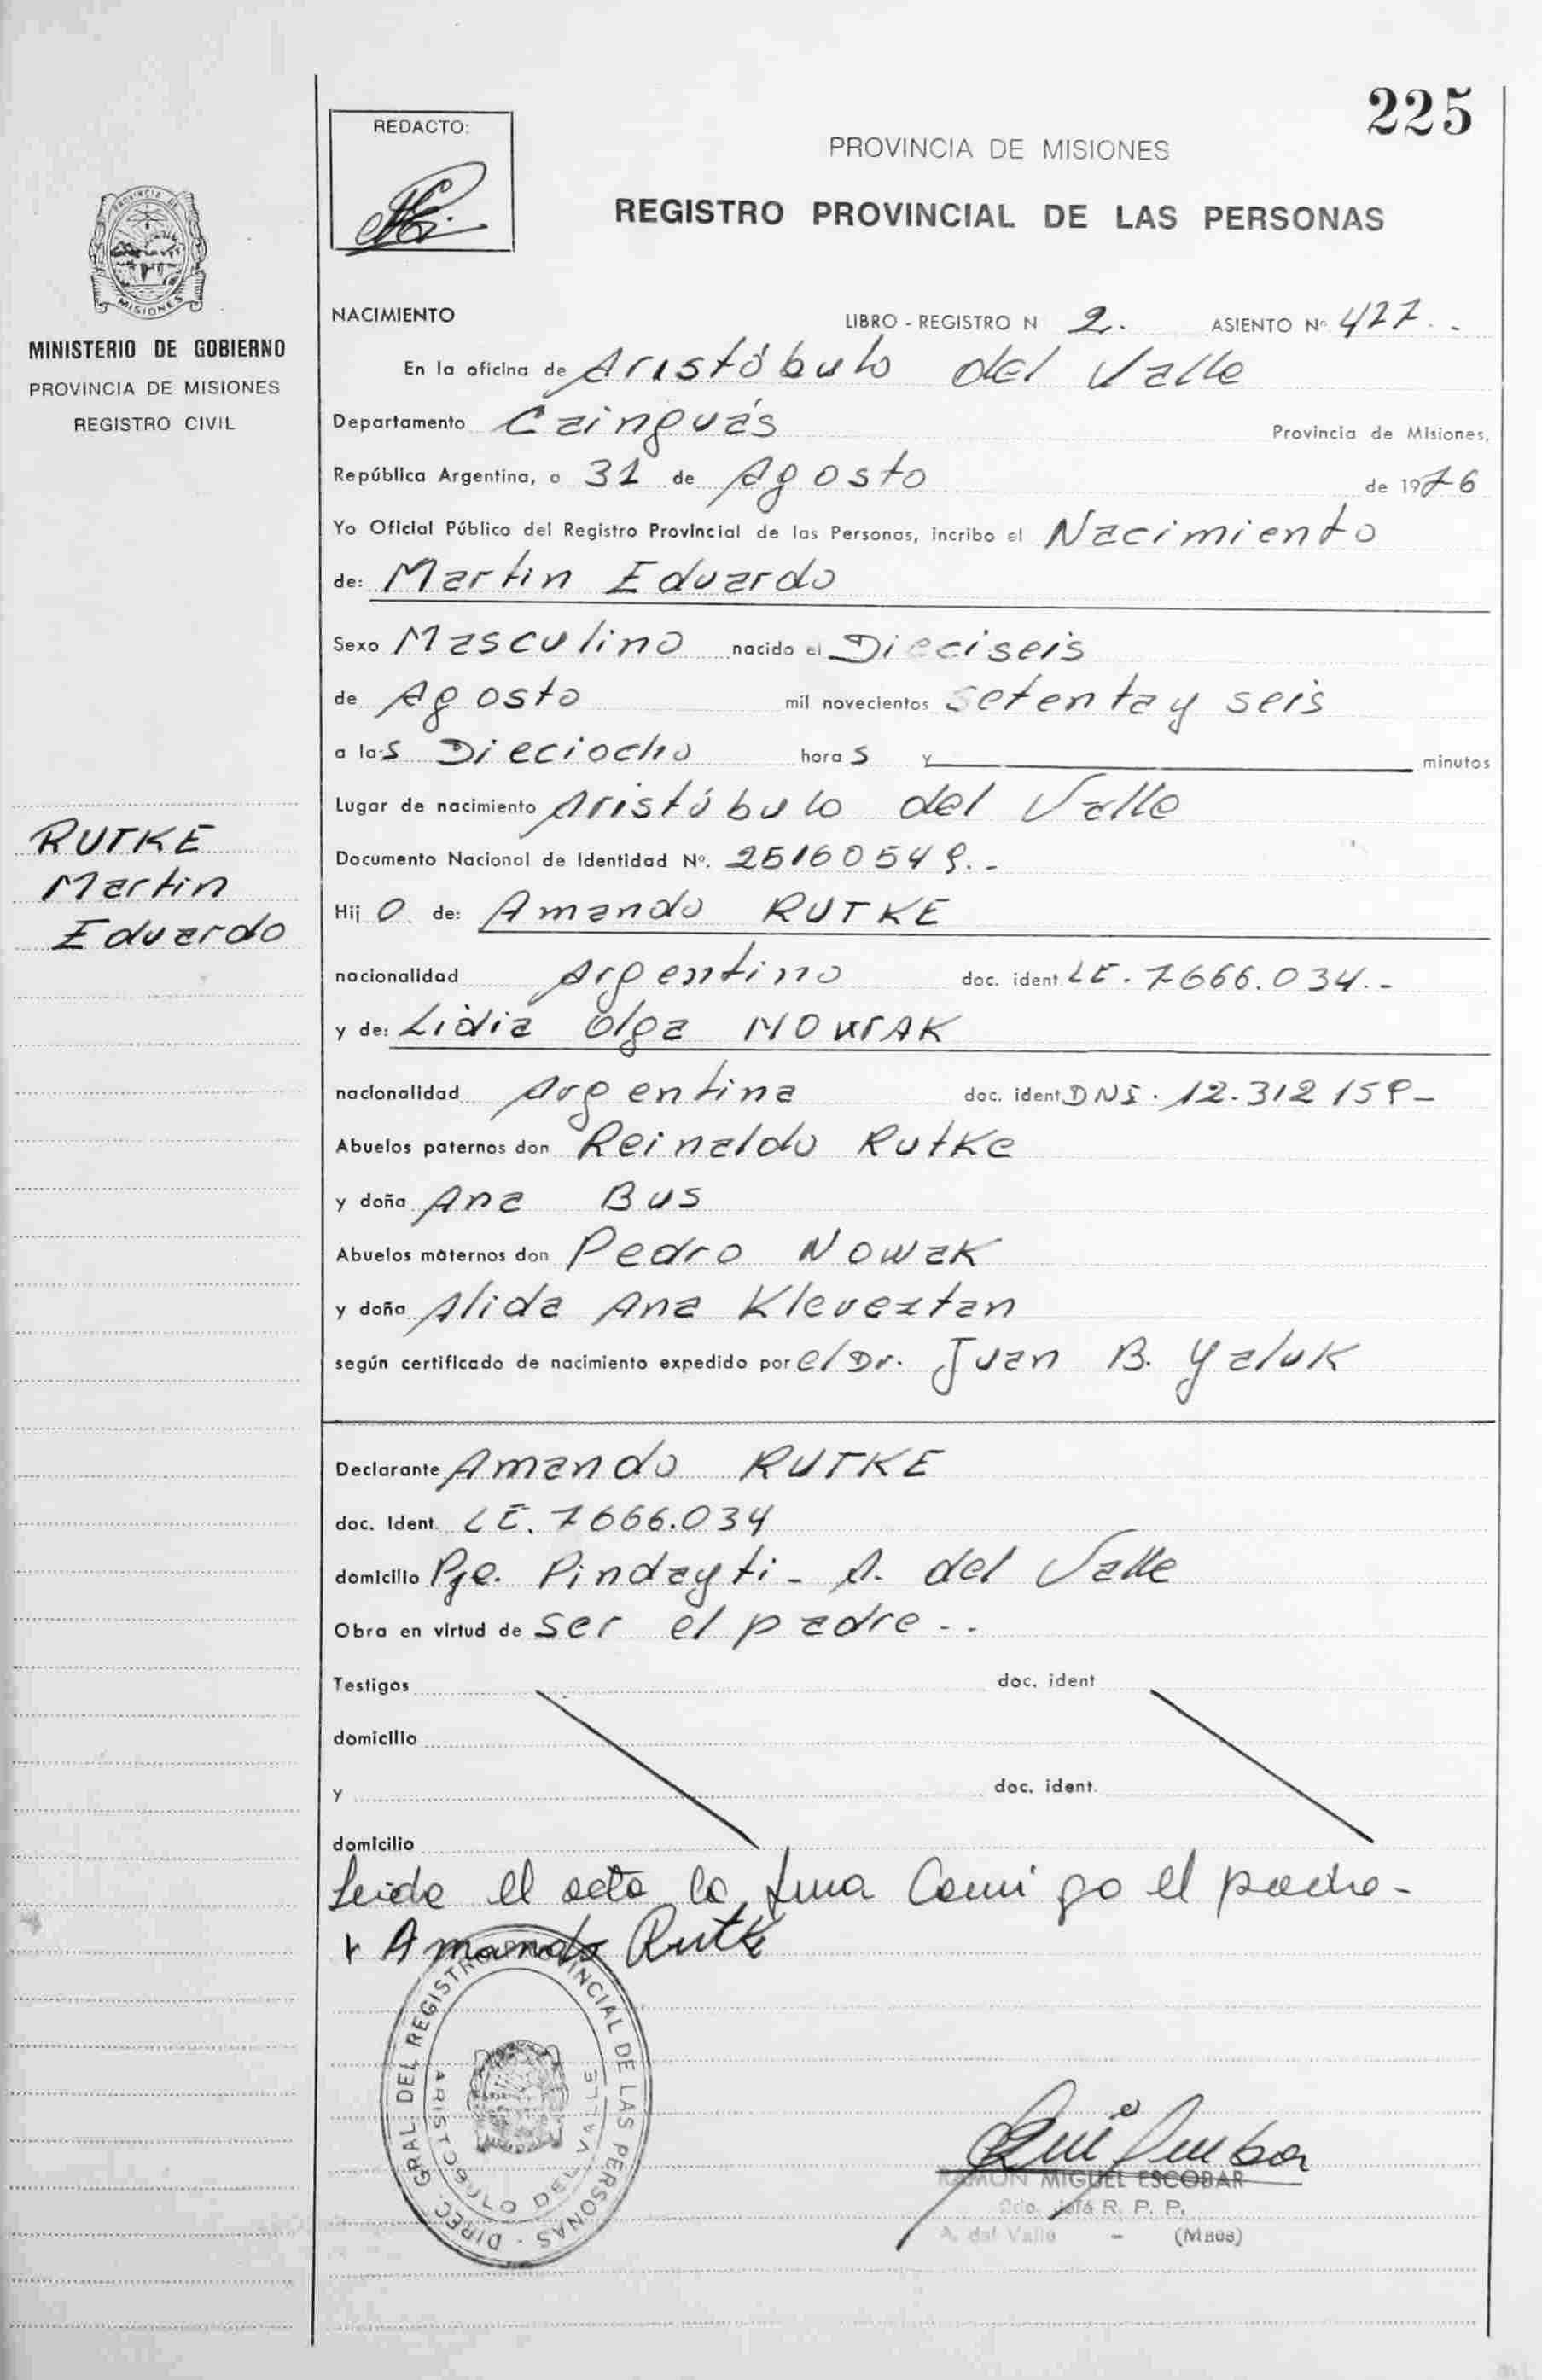 225
REDACTO:
PROVINCIA DE MISIONES
REGISTRO PROVINCIAL DE LAS PERSONAS
PROVINCIA DE
MISIONES
MINISTERIO DE GOBIERNO
PROVINCIA DE MISIONES
REGISTRO CIVIL
RUTKE
Martin
Eduardo
NACIMIENTO LIBRO - REGISTRO N 2. ASIENTO Nº 427..
En la oficina de Aristóbulo del Valle
Departamento Cainguás Provincia de Misiones,
República Argentina, a 31 de Agosto de 1976
Yo Oficial Público del Registro Provincial de las Personas, incribo el Nacimiento
de: Martin Eduardo
Sexo Masculino nacido el Dieciseis
de Agosto mil novecientos setenta y seis
a las Dieciocho horas y minutos
Lugar de nacimiento Aristóbulo del Valle
Documento Nacional de Identidad Nº. 25160549.-
Hijo de: Amando RUTKE
nacionalidad Argentino doc. ident. LE. 7666.034.-
y de: Lidia Olga NOWAK
nacionalidad Argentina doc. ident DNI. 12.312 159-
Abuelos paternos don Reinaldo Rutke
y doña Ana Bus
Abuelos maternos don Pedro Nowak
y doña Alida Ana
según certificado de nacimiento expedido por el Dr. Juan B. Yaluk
Declarante Amando RUTKE
doc. Ident. LE. 7666.034
domicilio Pje. Pindayti - A. del Valle
Obra en virtud de ser el padre - .
Testigos doc. ident
domicilio
y doc. ident.
domicilio
Leida el acta la firma Comigo el padre-
Amando Rutke
DIREC. GRAL. DEL REGISTRO PROVINCIAL DE LAS PERSONAS -
ARISTOBULO DEL VALLE
RAMON MIGUEL ESCOBAR
R. P. P.
A. del Valle - (Mnes)